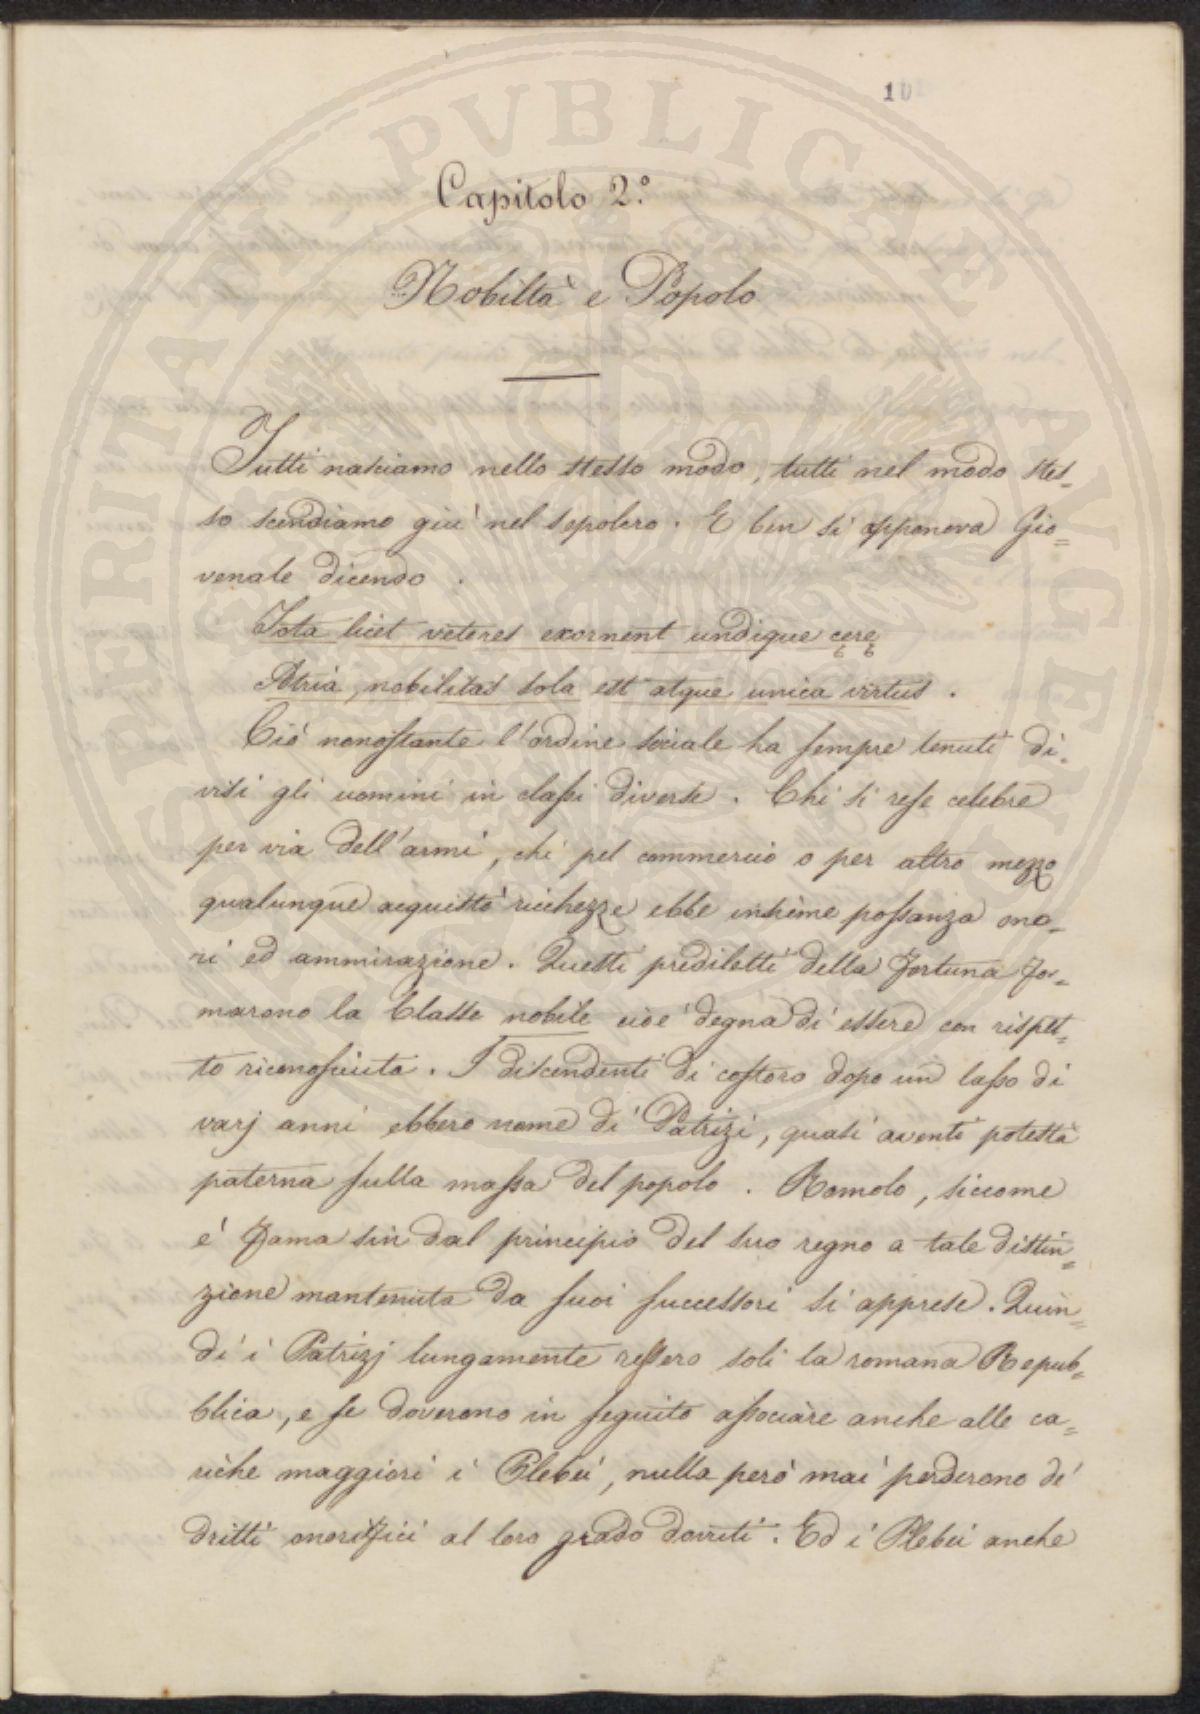 10
Capitolo 2.°
Nobiltà e Popolo
Tutti nasciamo nello stesso modo, tutti nel modo stes=
so scendiamo giù nel sepolcro. E ben si apponeva Gio=
venale dicendo.
Tota licet veteres exornent undique cerę
Atria, nobilitas sola est atque unica virtus.
Ciò nonostante l'ordine sociale ha sempre tenuti di=
visi gli uomini in classi diverse. Chi si rese celebre
per via dell'armi, chi pel commercio o per altro mezzo
qualunque acquistò ricchezze ebbe insieme possanza ono=
ri ed ammirazione. Questi prediletti della Fortuna for=
marono la Classe nobile cioè degna di essere con rispet=
to riconosciuta. I discendenti di costoro dopo un lasso di
varj anni ebbero nome di Patrizi, quasi aventi potestà
paterna sulla massa del popolo. Romolo, siccome
è fama sin dal principio del suo regno a tale distin=
zione mantenuta da suoi successori si apprese. Quin=
di i Patrizj lungamente ressero soli la romana Repub=
blica, e se doverono in seguito associare anche alle ca=
riche maggiori i Plebei, nulla però mai perderono de'
dritti onorifici al loro grado dovuti. Ed i Plebei anche
PROSPERITATI PVBLICAE AVGENDAE